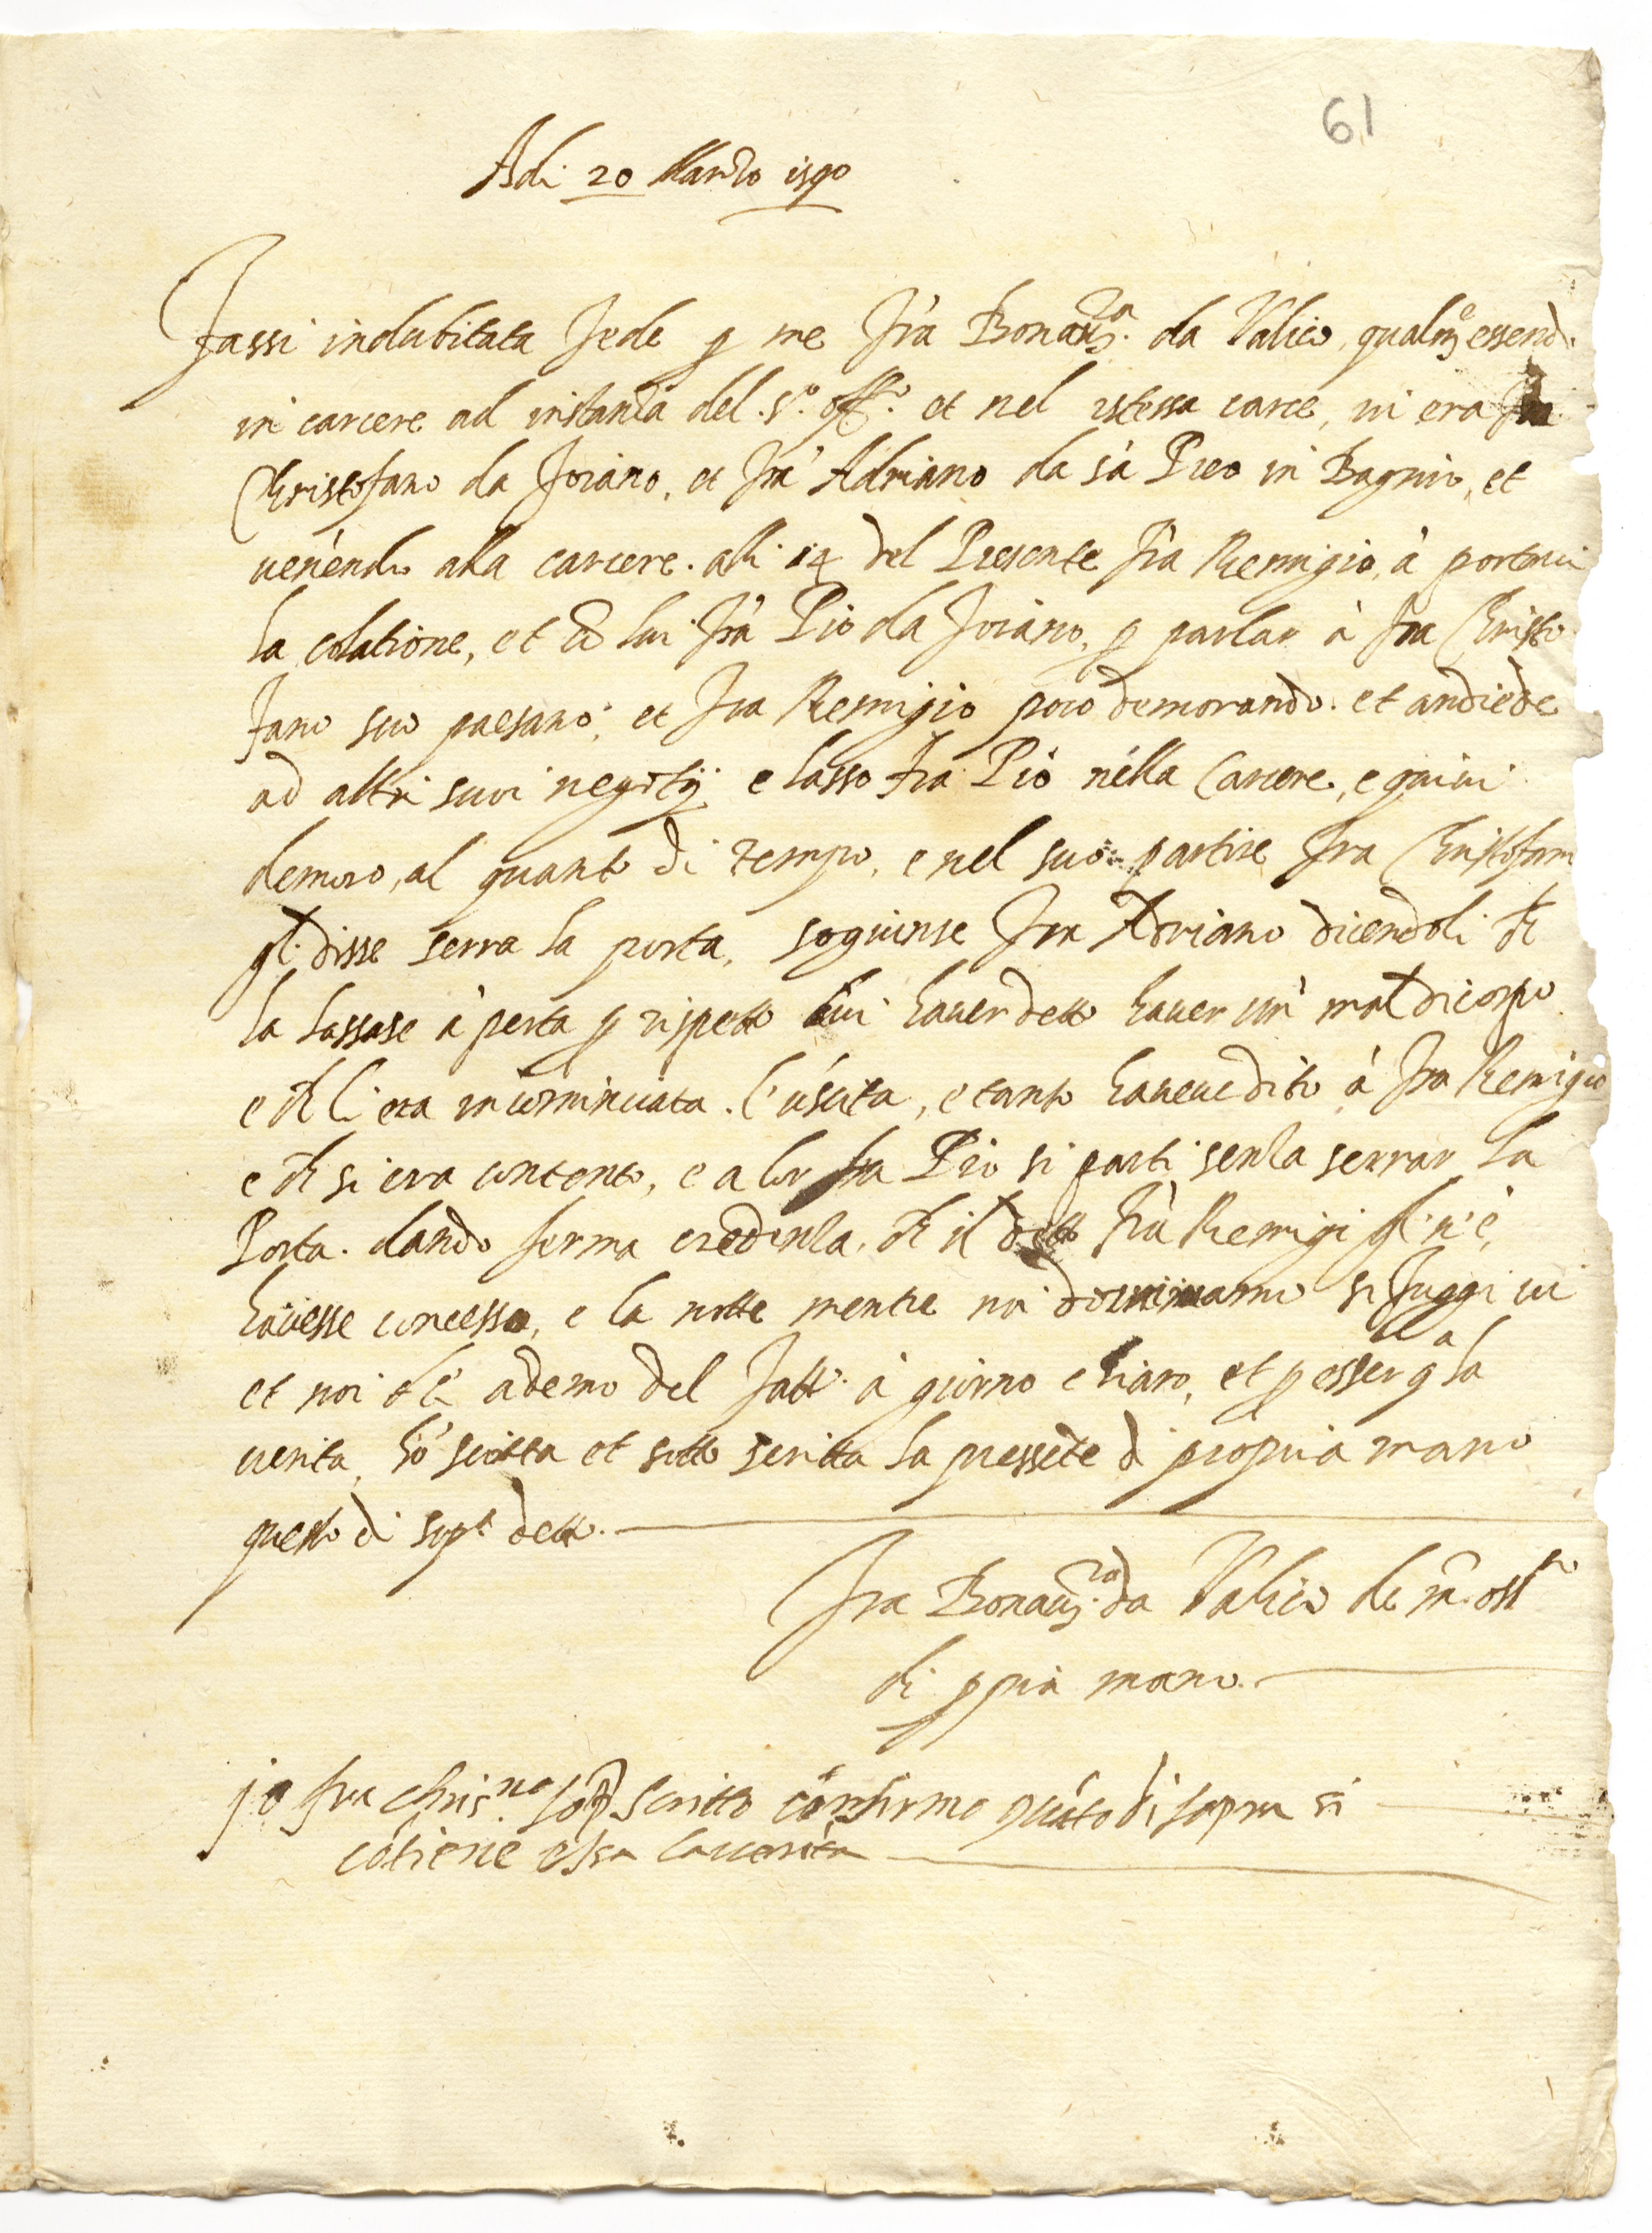 61
Adi 20 Marzo 1590
Fassi indubitata fede p me frà Bonavra. da Valico, qualmẽ essendo
in carcere ad instanza del .s.to off.o et nel istessa carce, vi era fra
Christofano da Foiano, et frà Adriano da sà Piero in Bagnio, et
venendo alla carcere. alli 14 del Presente frà Remigio, à portarvi
la colatione, et cõ lui frà Pio da Foiano, p parlar à fra Christo
fano suo paesano, et fra Remigio poco demorando. et andiede
ad altri suoi negotij e lasso fra Pio nella Carcere, e quivi
demoro, al quanto di tempo, e nel suo partire fra Christofano
gl. disse serra la porta, sogiunse fra Adriano dicendoli ch
la lassase à perta p rispetto lui haver detto haver un mal di corpo
e ch li era incominciata. l'uscita, e tanto haveve dito à fra Remigio
e ch si era contento, e a lor fra Pio si partì senza serrar la
Porta. dando ferma credenza. ch il detto frà Remigi gl'n'è,
havesse concesso, e la notte mentre noi dormivamo si fuggi vi
et noi ci ademo del fatto. à giorno chiaro, et p esser qa la
verita, hò scritta et sotto scritta la pressẽte d propria mano
questo dì sop.a detto.
Fra Bonavra. da Valico de mĩ. oss.ti
di ppia mano.
jo fra chris.no sop scritto cõnfirmo quãto di sopra si
cõtiene essa la verita